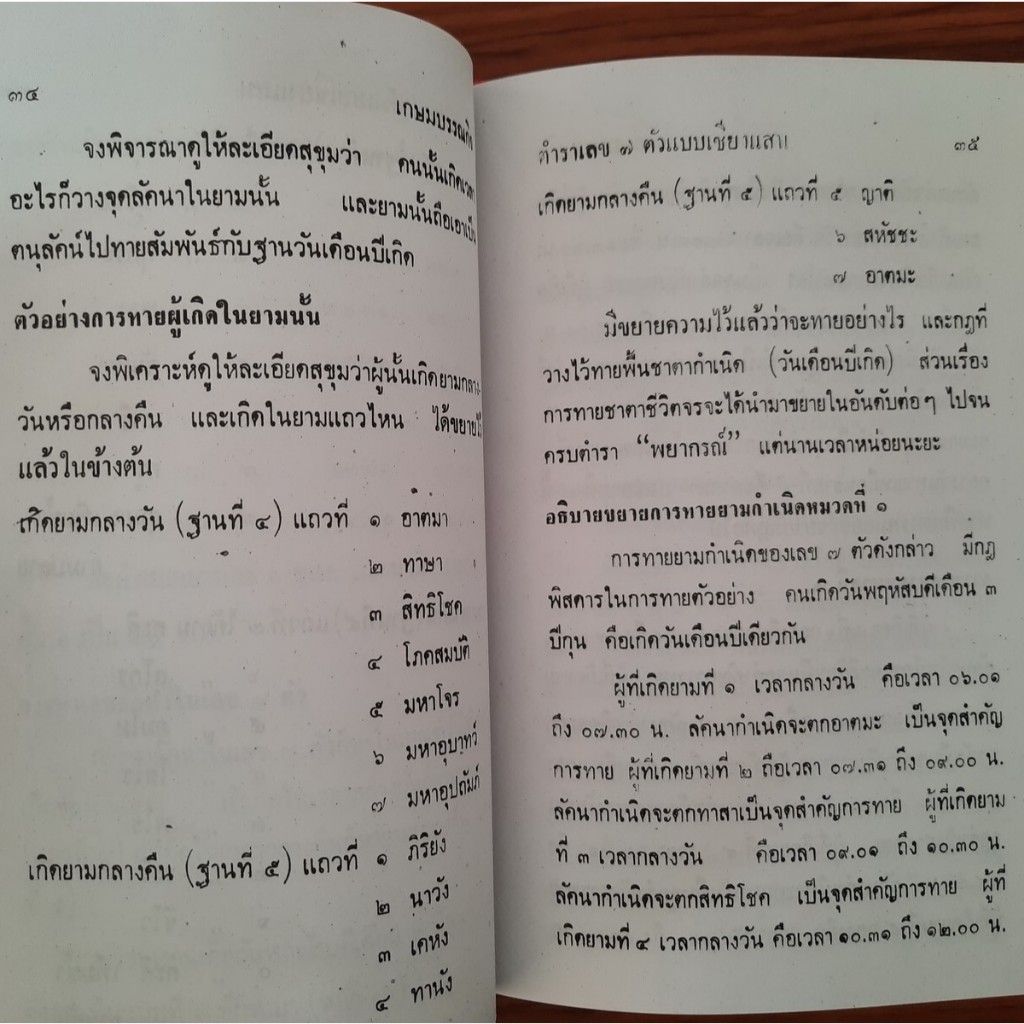 ๓๔
เกษมบรรณกิจ
จงพิจารณาดูให้ละเอียดสุขุมว่า คนนั้นเกิดเวลา
อะไรก็วางจุดลัคนาในยามนั้น และยามนั้นถือเอาเป็น
ตนุลัคน์ไปทายสัมพันธ์กับฐานวันเดือนปีเกิด
ตัวอย่างการทายผู้เกิดในยามนั้น
จงพิเคราะห์ดูให้ละเอียดสุขุมว่าผู้นั้นเกิดยามกลาง-
วันหรือกลางคืน และเกิดในยามแถวไหน ได้ขยายไว้
แล้วในข้างต้น
เกิดยามกลางวัน (ฐานที่ ๔) แถวที่ ๑ อาตมา
๒ ทาษา
๓ สิทธิโชค
๔ โภคสมบัติ
๕ มหาโจร
๖ มหาอุบาทว์
๗ มหาอุปถัมภ์
เกิดยามกลางคืน (ฐานที่ ๕) แถวที่ ๑ ภิริยัง
๒ นาวัง
๓ เคหัง
๔ ทานัง
ตำราเลข ๗ ตัวแบบเชียงแสน
๓๕
เกิดยามกลางคืน (ฐานที่ ๕) แถวที่ ๕ ญาติ
๖ สหัชชะ
๗ อาตมะ
มีขยายความไว้แล้วว่าจะทายอย่างไร และกฎที่
วางไว้ทายพื้นชาตากำเนิด (วันเดือนปีเกิด) ส่วนเรื่อง
การทายชาตาชีวิตจรจะได้นำมาขยายในอันดับต่อๆ ไปจน
ครบตำรา “พยากรณ์” แต่นานเวลาหน่อยนะยะ
อธิบายขยายการทายยามกำเนิดหมวดที่ ๑
การทายยามกำเนิดของเลข ๗ ตัวดังกล่าว มีกฎ
พิสดารในการทายตัวอย่าง คนเกิดวันพฤหัสบดีเดือน ๓
ปีกุน คือเกิดวันเดือนปีเดียวกัน
ผู้ที่เกิดยามที่ ๑ เวลากลางวัน คือเวลา ๐๖.๐๑
ถึง ๐๗.๓๐ น. ลัคนากำเนิดจะตกอาตมะ เป็นจุดสำคัญ
การทาย ผู้ที่เกิดยามที่ ๒ ถือเวลา ๐๗.๓๑ ถึง ๐๙.๐๐ น.
ลัคนากำเนิดจะตกทาสาเป็นจุดสำคัญการทาย ผู้ที่เกิดยาม
ที่ ๓ เวลากลางวัน คือเวลา ๐๙.๐๑ ถึง ๑๐.๓๐ น.
ลัคนากำเนิดจะตกสิทธิโชค เป็นจุดสำคัญการทาย ผู้ที่
เกิดยามที่ ๔ เวลากลางวัน คือเวลา ๑๐.๓๑ ถึง ๑๒.๐๐ น.